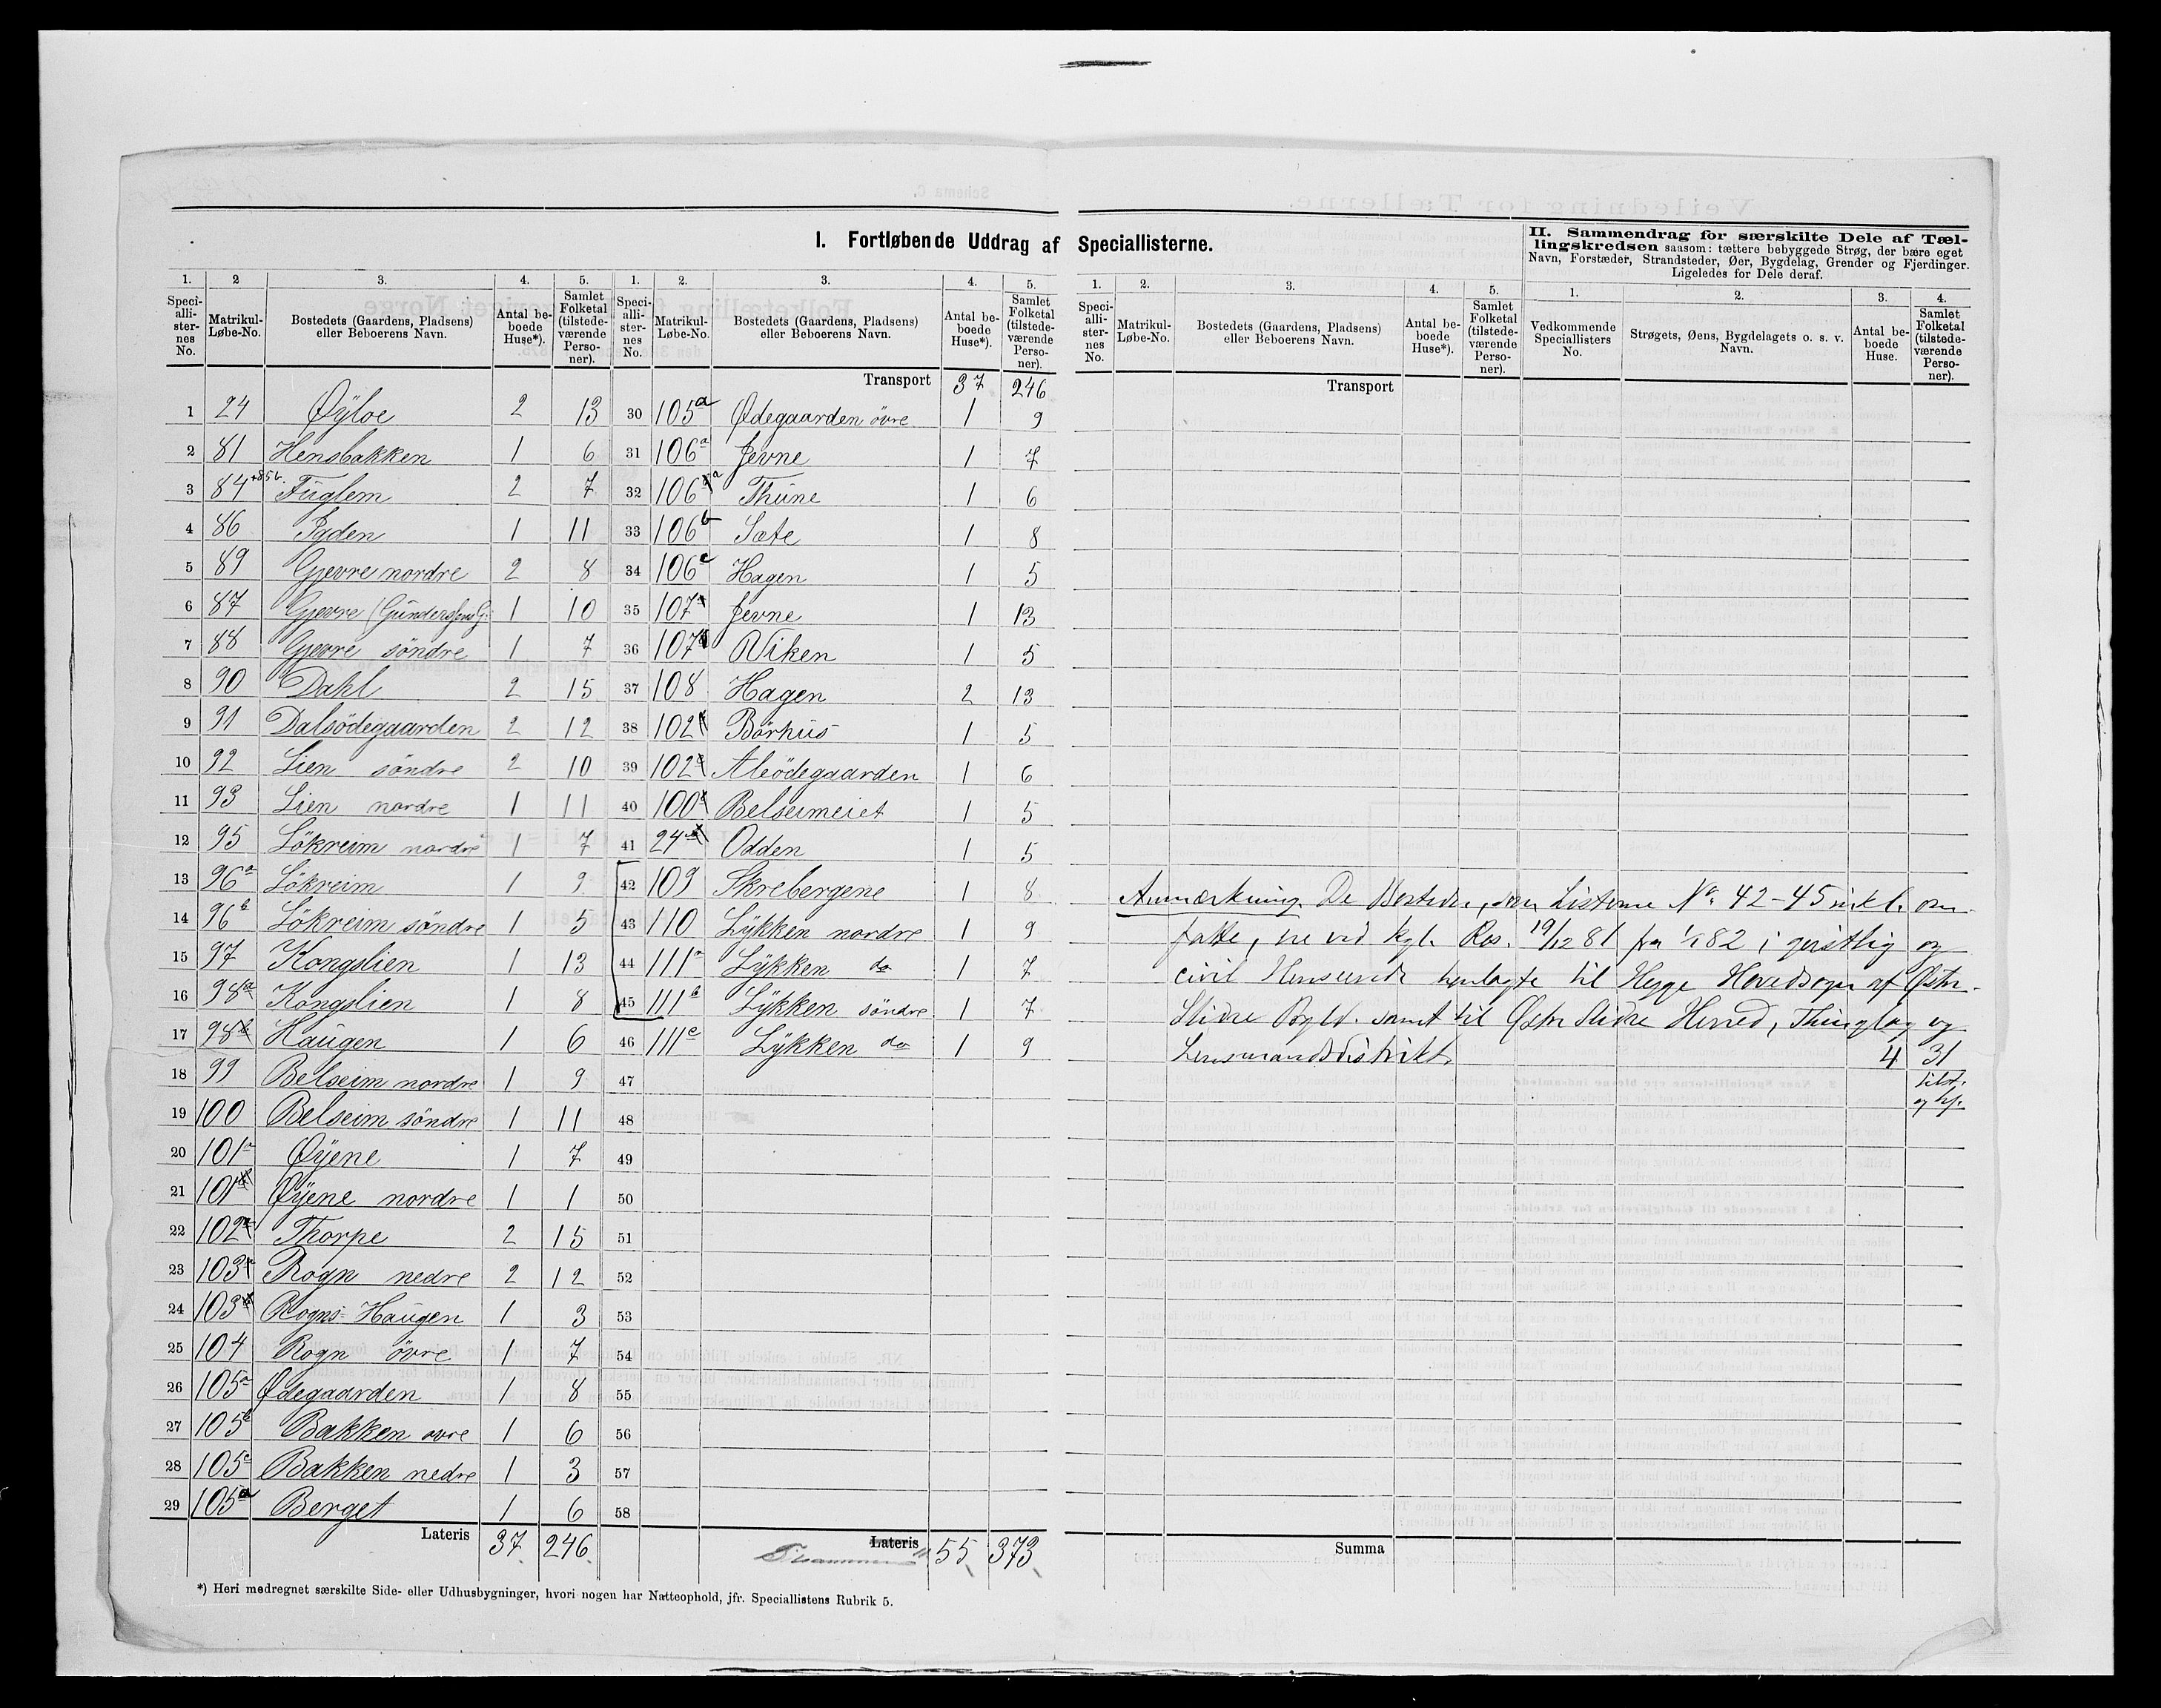 I. Fortløbende Uddrag af Speciallisterne.
II. Sammendrag for særskilte Dele af Tæl-
lingskredsen saasom: tættere bebyggede Strøg, der bære eget
Navn, Forstæder, Strandsteder, Øer, Bygdelag, Grender og Fjerdinger.
Ligeledes for Dele deraf.
1. 2 3. 4. 5. 1. 2. 3. 4. 5. 1. 2. 3. 4. 5. 1. 2. 3. 4.
Speci-alli-ster-nes No. Matrikul-Løbe-No. Bostedets (Gaardens, Pladsens) eller Beboerens Navn. Antal be-boede Huse*). Samlet Folketal (tilstede-værende Perso-ner).
Speci-alli-ster-nes No. Matrikul-Løbe-No. Bostedets (Gaardens, Pladsens) eller Beboerens Navn. Antal be-boede Huse*). Samlet Folketal (tilstede-værende Perso-ner).
Speci-alli-ster-nes No. Matrikul-Løbe-No. Bostedets (Gaardens, Pladsens) eller Beboerens Navn. Antal be-boede Huse*). Samlet Folketal (tilstede-værende Perso-ner).
Vedkommende Speciallisters No. Strøgets, Øens, Bygdelagets o. s. v. Navn. Antal be-boede Huse. Samlet Folketal (tilstede-værende Perso-ner).
1 24 Øyloe 2 13
2 81 Hensbakken 1 6
3 84+85b. Fuglem 2 7
4 86 Ygden 1 11
5 89 Gjevre nordre 2 8
6 87 Gjevre 1 10
7 88 Gjevre söndre 1 7
8 90 Dahl 2 15
9 91 Dalsödegaarden 2 12
10 92 Lien söndre 2 10
11 93 Lien nordre 1 11
12 95 Lökreim nordre 1 7
13 96a Lökreim 1 9
14 96b Lökreim söndre 1 5
15 97 Kongslien 1 13
16 98a Kongslien 1 8
17 98b Haugen 1 6
18 99 Belseim nordre 1 9
19 100 Belseim söndre 1 11
20 101a Øyene 1 7
21 101 Øyene nordre 1 1
22 102a Thorpe 2 15
23 103 Rogn nedre 2 12
24 103 Rogns-Haugen 1 3
25 104 Rogn övre 1 7
26 105a Ødegaarden 1 8
27 105b Bakken övre 1 6
28 105c Bakken nedre 1 3
29 105a Berget 1 6
Lateris 37 246
Transport 37 246
30 105a Ødegaarden övre 1 9
31 106a Jevne 1 7
32 106a Thune 1 6
33 106b Sæte 1 8
34 106c Hagen 1 5
35 107 Jevne 1 13
36 107 Viken 1 5
37 108 Hagen 2 13
38 102 Börhus 1 5
39 102 Aleödegaarden 1 6
40 100 Belseimeiet 1 5
41 24 Odden 1 5
42 109 Skrebergene 1 8
43 110 Lykken nordre 1 9
44 111a Lykken do 1 7
45 111b Lykken söndre 1 7
46 111c Lykken do 1 9
47
48
49
50
51
52
53
54
55
56
57
58
Lateris 55 373
Transport
Anmærkning. De Bosteder, som Listerne No. 42-45 inkl. om-
fatte, ere ved kgl. Res. 19/12 81 fra 1/1 82 i geistlig og
civil Henseende henlagte til Hegge Hovedsogn af Østre
Slidre Pgld. samt til Østre Slidre Herred, Thinglag og
Lensmandsdistrikt. 4 31
tilst.
og hj.
Summa
*) Heri medregnet særskilte Side- eller Udhusbygninger, hvori nogen har Natteophold, jfr. Speciallistens Rubrik 5.